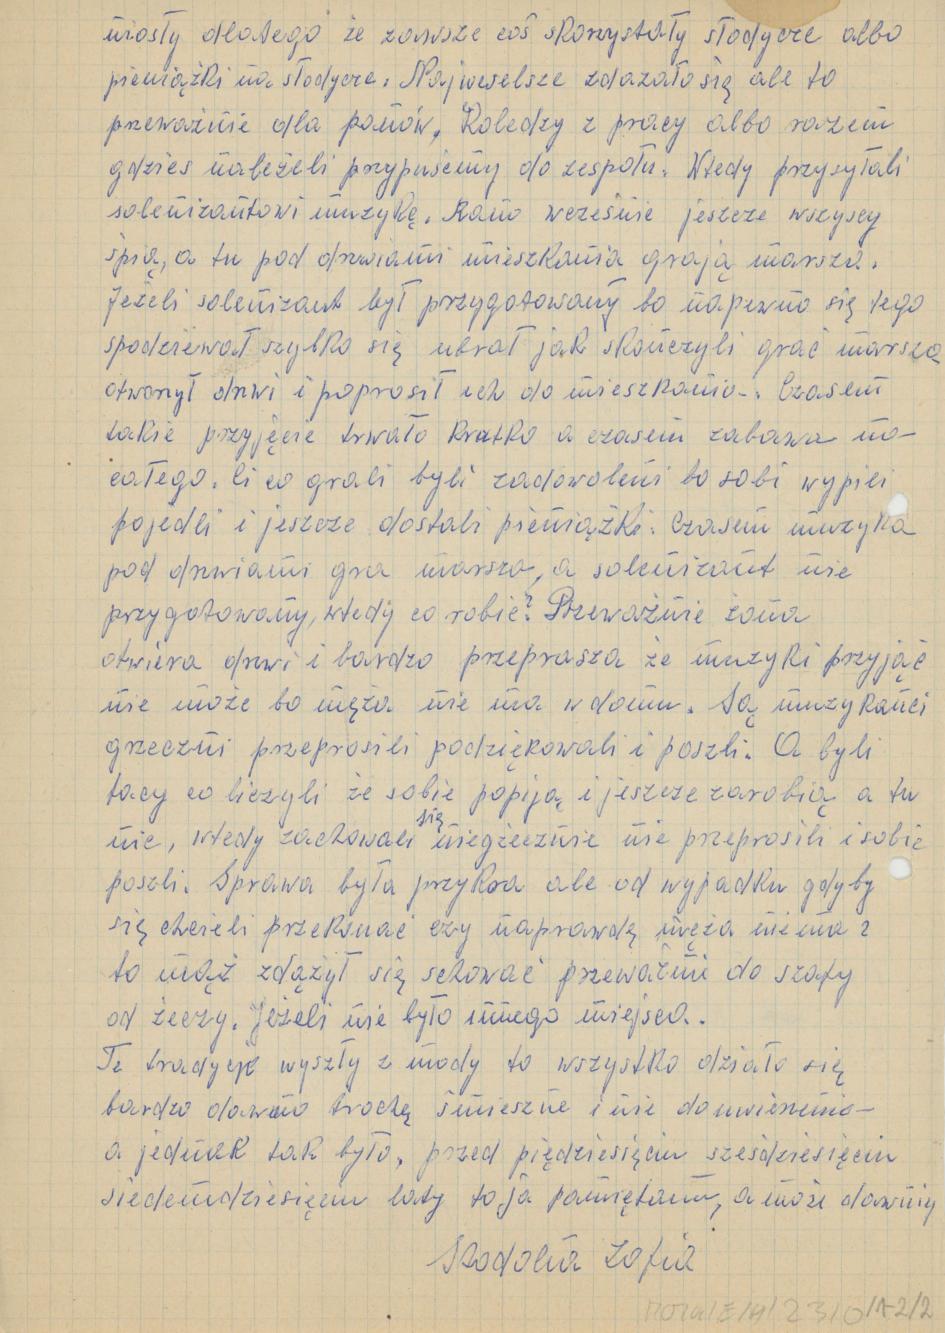 niosły dlatego że zawsze coś skorzystały słodycze albo
pieniążki na słodycze. Najweselsze zdażało się ale to
przeważnie dla panów. Koledzy z pracy albo razem
gdzieś należeli przypuśćmy do zespołu. Wtedy przysyłali
solenizantowi muzykę. Rano wcześnie jeszcze wszyscy
śpią, a tu pod drzwiami mieszkania grają marsza.
Jeżeli solenizant był przygotowany bo napewno się tego
spodziewał szybko się ubrał jak skończyli grać marsza
otworzył drzwi i poprosił ich do mieszkania. Czasem
takie przyjęcie trwało kratko a czasem zabawa na
całego. Ci co grali byli zadowoleni bo sobi wypili
pojedli i jeszcze dostali pieniążki. Czasem muzyka
pod drzwiami gra marsza, a solenizant nie
przygotowany, wtedy co robić? Przeważnie żona
otwiera drzwi i bardzo przeprasza że muzyki przyjąć
nie może bo męża nie ma w domu. Są muzykańci
grzeczni przeprosili podziękowali i poszli. A byli
tacy co liczyli że sobie popiją i jeszcze zarobią a tu
nic, wtedy zachowali się niegżecznie nie przeprosili i sobie
poszli. Sprawa była przykra ale od wypadku gdyby
się chcieli przekonać czy naprawdę męża niema?
to mąż zdążył się schować przeważni do szafy
od żeczy. Jeżeli nie było innego miejsca.
Te tradycje wyszły z mody to wszystko działo się
bardzo dawno trochę śmieszne i nie do uwierzenia
a jednak tak było, przed piędziesięciu sześdziesięciu
siedemdziesięciu laty to ja pamiętam, a może dawniy
Zofia
2310/1-2/2